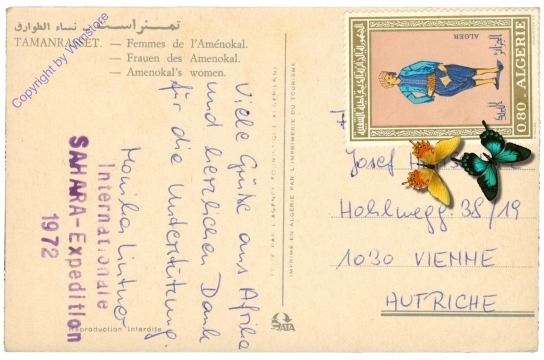 تمنراست - نساء الطوارق
TAMANRASSET. — Femmes de l'Aménokal.
— Frauen des Amenokal.
— Amenokal's women.
Copyright by Winstore
Viele Grüße aus Afrika
und herzlichen Dank
für die Unterstützung.
Monika Lintner
Internationale
SAHARA-Expedition
1972
Reproduction Interdite
IMPRIMÉ EN ALGÉRIE PAR L'IMPRIMERIE DU TOURISME
ALGER
الجزائر
0.80 ALGERIE
Josef
Hohlwegg. 38/19
1030 VIENNE
AUTRICHE